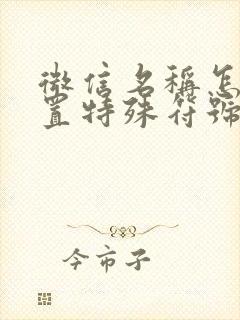 微信名稱怎
置特殊符號
今市子